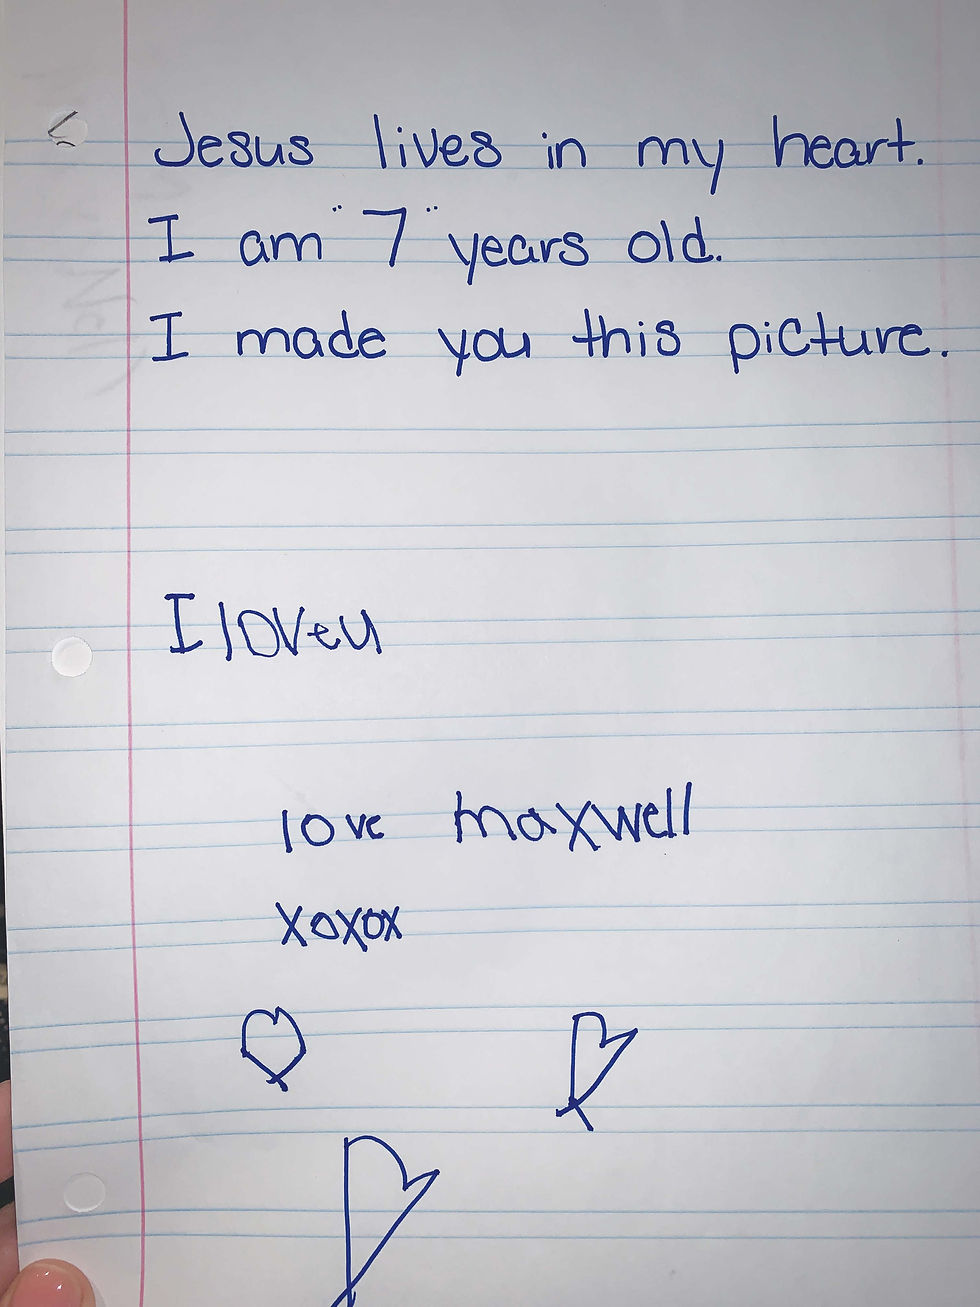 Jesus lives in my heart.
I am "7" years old.
I made you this picture.
I love u
love maxwell
xoxox